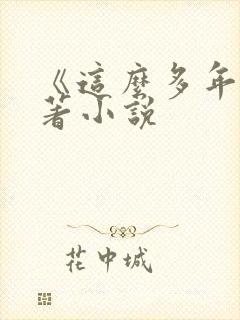 《這麼多年
著小說
花中城